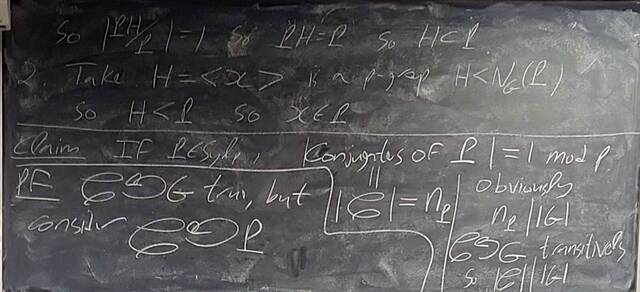 So |PH/P| = 1 so PH = P so H < P
2. Take H = <x> is a p-group H < N_G(P)
so H < P so x ∈ P
Claim IF P ∈ Syl_p, |Conjugates OF P| = 1 mod p
PF 𝒞 ↻ G true, but
consider 𝒞 ↻ P
||
|𝒞| = n_p
obviously
n_p | |G|
𝒞 ↻ G transitively
so |𝒞| | |G|